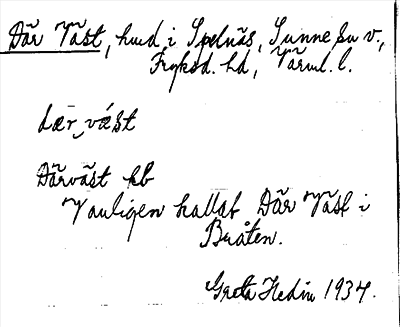 Där Väst, hmd i Spelnäs, Sunne sn v.,
Fryksd. hd, Värml. l.
dær väst
Därväst kb
Vanligen kallat Där Väst i
Bråten.
Greta Hedin 1934.